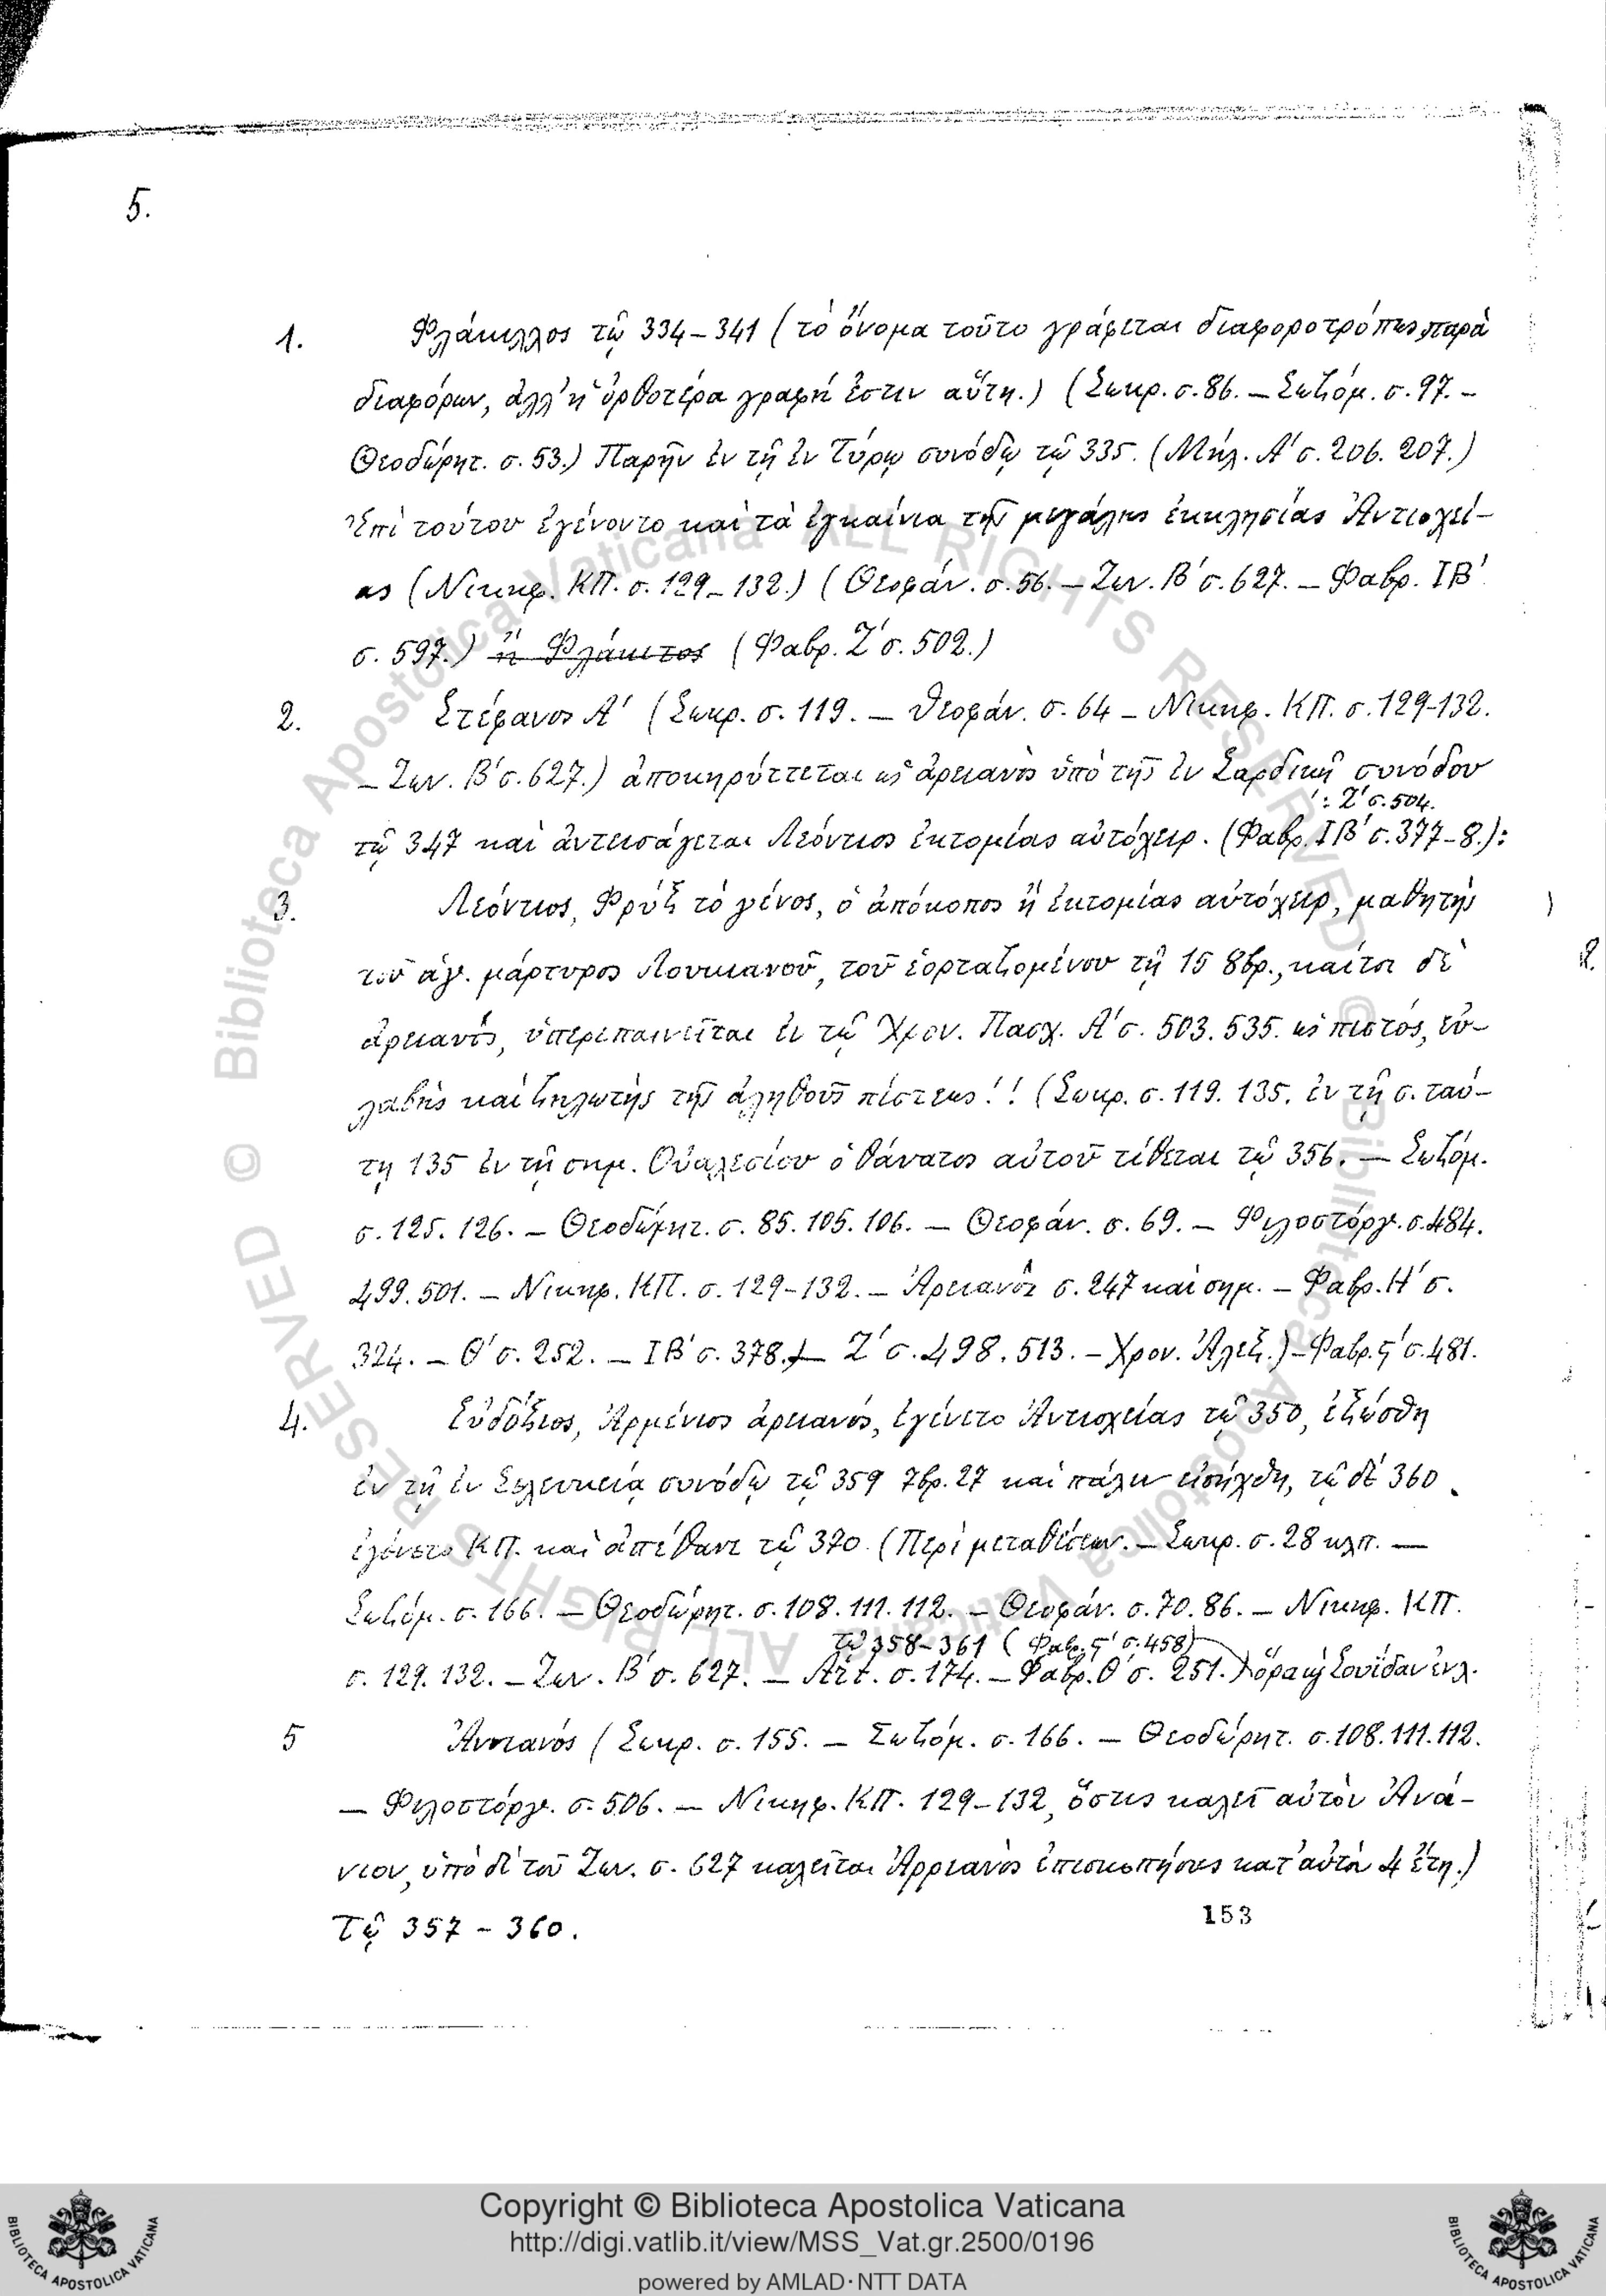 5.
1. Φλάκιλλος τῷ 334–341 (τὸ ὄνομα τοῦτο γράφεται διαφοροτρόπως παρὰ
διαφόρων, ἀλλ' ἡ ὀρθοτέρα γραφή ἐστιν αὕτη.) (Σωκρ. σ. 86. – Σωζόμ. σ. 97. –
Θεοδώρητ. σ. 53.) Παρῆν ἐν τῇ ἐν Τύρῳ συνόδῳ τῷ 335. (Μήλ. Α' σ. 206. 207.)
Ἐπὶ τούτου ἐγένοντο καὶ τὰ ἐγκαίνια τῆς μεγάλης ἐκκλησίας Ἀντιοχεί–
ας (Νικηφ. ΚΠ. σ. 129–132.) (Θεοφάν. σ. 56. – Ζων. Β' σ. 627. – Φαβρ. ΙΒ'
σ. 597.) ἢ Φλάκιτος (Φαβρ. Ζ' σ. 502.)
2. Στέφανος Α' (Σωκρ. σ. 119. – Θεοφάν. σ. 64 – Νικηφ. ΚΠ. σ. 129-132.
– Ζων. Β' σ. 627.) ἀποκηρύττεται ὡς ἀρειανὸς ὑπὸ τῆς ἐν Σαρδικῇ συνόδου
: Ζ' σ. 504.
τῷ 347 καὶ ἀντεισάγεται Λεόντιος ἐκτομίας αὐτόχειρ. (Φαβρ. ΙΒ' σ. 377–8.):
3. Λεόντιος, Φρὺξ τὸ γένος, ὁ ἀπόκοπος ἢ ἐκτομίας αὐτόχειρ, μαθητὴς
τοῦ ἁγ. μάρτυρος Λουκιανοῦ, τοῦ ἑορταζομένου τῇ 15 8βρ., καίτοι δὲ
ἀρειανός, ὑπερεπαινεῖται ἐν τῷ Χρον. Πασχ. Α' σ. 503. 535. ὡς πιστός, εὐ–
λαβὴς καὶ ζηλωτὴς τῆς ἀληθοῦς πίστεως!! (Σωκρ. σ. 119. 135. ἐν τῇ σ. ταύ–
τῃ 135 ἐν τῇ σημ. Οὐαλεσίου ὁ θάνατος αὐτοῦ τίθεται τῷ 356. – Σωζόμ.
σ. 125. 126. – Θεοδώρητ. σ. 85. 105. 106. – Θεοφάν. σ. 69. – Φιλοστόργ. σ. 484.
499. 501. – Νικηφ. ΚΠ. σ. 129–132. – Ἀρειανοὶ σ. 247 καὶ σημ. – Φαβρ. Η' σ.
324. – Θ' σ. 252. – ΙΒ' σ. 378. – Ζ' σ. 498. 513. – Χρον. Ἀλεξ.) – Φαβρ. ϛ' σ. 481.
4. Εὐδόξιος, Ἀρμένιος ἀρειανός, ἐγένετο Ἀντιοχείας τῷ 350, ἐξώσθη
ἐν τῇ ἐν Σελευκείᾳ συνόδῳ τῷ 359 7βρ. 27 καὶ πάλιν εἰσήχθη, τῷ δὲ 360
ἐγένετο ΚΠ. καὶ ἀπέθανε τῷ 370. (Περὶ μεταθέσεων. – Σωκρ. σ. 28 κλπ. –
Σωζόμ. σ. 166. – Θεοδώρητ. σ. 108. 111. 112. – Θεοφάν. σ. 70. 86. – Νικηφ. ΚΠ.
τῷ 358–361 (Φαβρ. ϛ' σ. 458)
σ. 129. 132. – Ζων. Β' σ. 627. – Ἀέτ. σ. 174. – Φαβρ. Θ' σ. 251.) ὅρα Σουΐδαν ἐν λ.
5 Ἀννιανός (Σωκρ. σ. 155. – Σωζόμ. σ. 166. – Θεοδώρητ. σ. 108. 111. 112.
– Φιλοστόργ. σ. 506. – Νικηφ. ΚΠ. 129–132, ὅστις καλεῖ αὐτὸν Ἀνά–
νιον, ὑπὸ δὲ τοῦ Ζων. σ. 627 καλεῖται Ἀρριανὸς ἐπισκοπήσας κατ' αὐτὸν 4 ἔτη.)
Τῷ 357 – 360.
153
© Biblioteca Apostolica Vaticana ALL RIGHTS RESERVED
Copyright © Biblioteca Apostolica Vaticana
http://digi.vatlib.it/view/MSS_Vat.gr.2500/0196
powered by AMLAD·NTT DATA
BIBLIOTECA APOSTOLICA VATICANA
BIBLIOTECA APOSTOLICA VATICANA